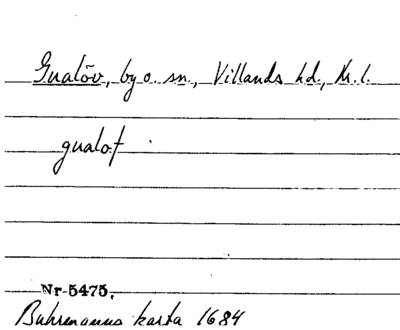 Gualöv, by o. sn., Villands hd., Kr. l.
gualof
Nr 5475,
Buhrmanns karta 1684